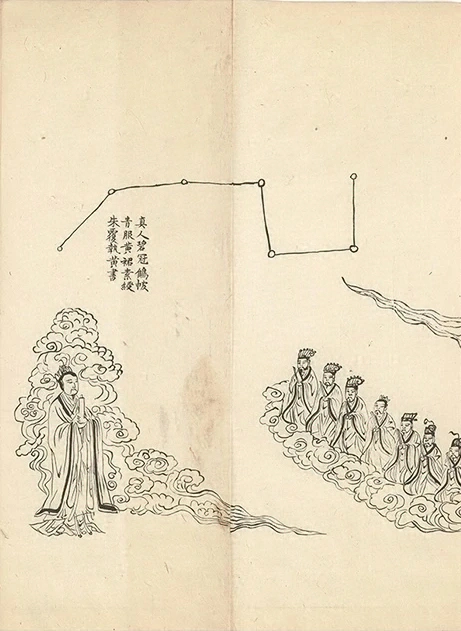 真人碧冠鶴帔
青服黄裙素綬
朱履執黄書